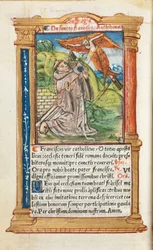 De sancto francisco. Antiphona.
Francisce vir catholice. O totus aposto
licus ecclesie teneri fidē romane docuisti pres
biterosq; monuisti pre cunctis reuereri.
Ora pro nobis beate pater francisce. Vt
digni efficiamur promissionibus christi. Orō.
Deus qui ecclesiam tuam beati frācisci me
ritis fetu noue prolis amplificas: tribue no
bis ex eius imitatione terrena despicere: et ce
lestium donorum semper participatione gaude
re. Per christum dominum nostrum. Amen.